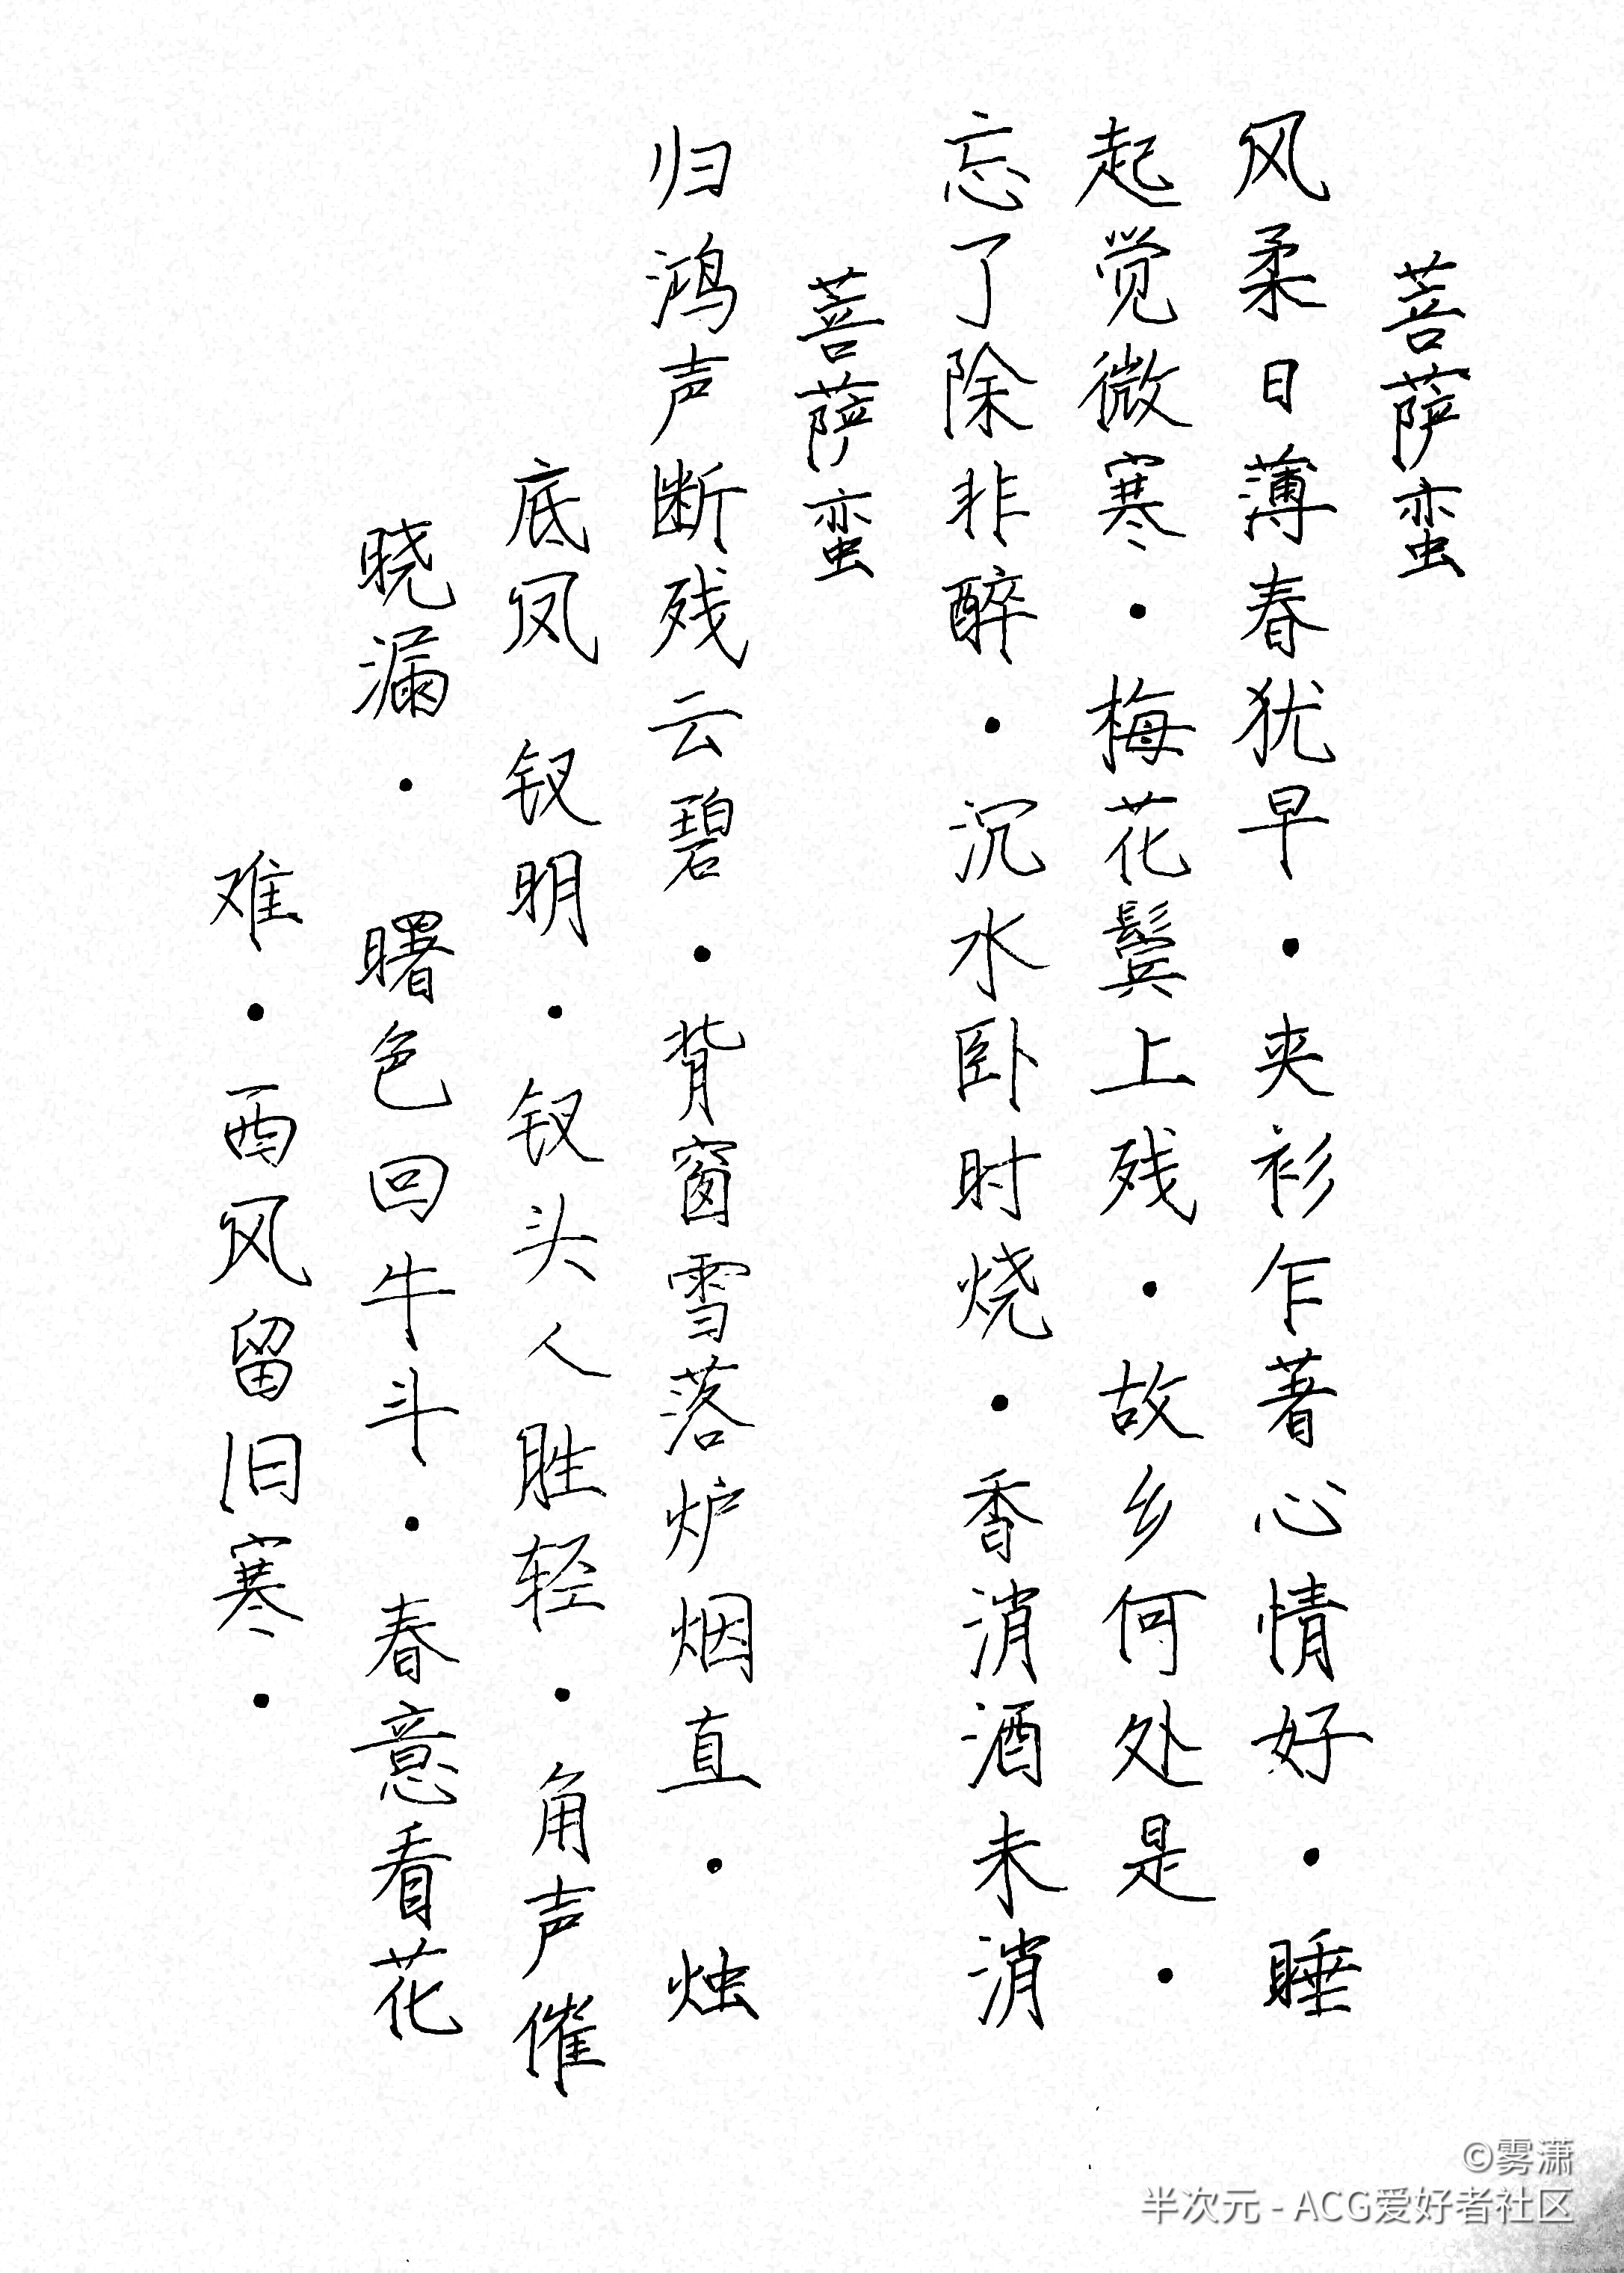 菩萨蛮
风柔日薄春犹早·夹衫乍著心情好·睡
起觉微寒·梅花鬓上残·故乡何处是·
忘了除非醉·沉水卧时烧·香消酒未消
菩萨蛮
归鸿声断残云碧·背窗雪落炉烟直·烛
底凤钗明·钗头人胜轻·角声催
晓漏·曙色回牛斗·春意看花
难·西风留旧寒·
©雾潇
半次元 - ACG爱好者社区